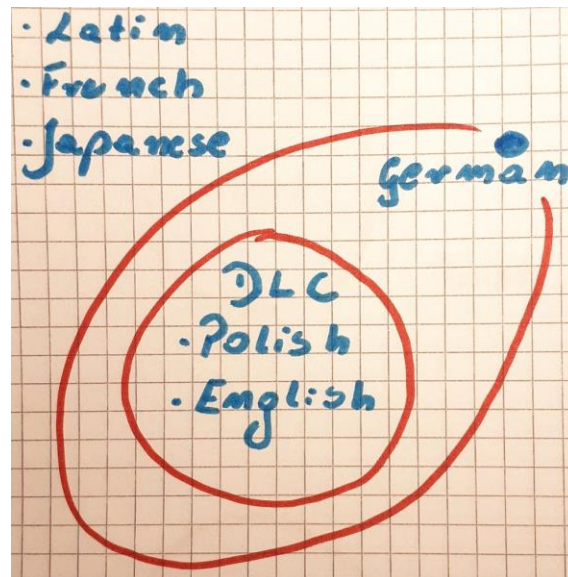 · Latin
· French
· Japanese
German
DLC
· Polish
· English